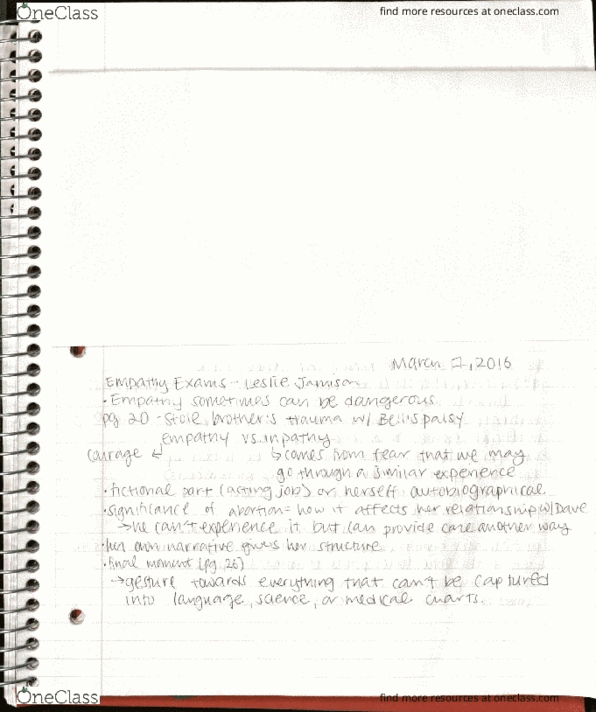 OneClass
find more resources at oneclass.com
March 2, 2016
Empathy Exams - Leslie Jamison
• Empathy sometimes can be dangerous
pg 20 - stole brother's trauma w/ Bell's palsy
empathy vs. inpathy
courage ↵ ↳ comes from fear that we may
go through a similar experience
• fictional part (acting job) or herself autobiographical
• significance of abortion = how it affects her relationship w/ Dave
→ he can't experience it but can provide care another way
• her own narrative gives her structure
• final moment (pg 26)
→ gesture towards everything that can't be captured
into language, science, or medical charts.
OneClass
find more resources at oneclass.com